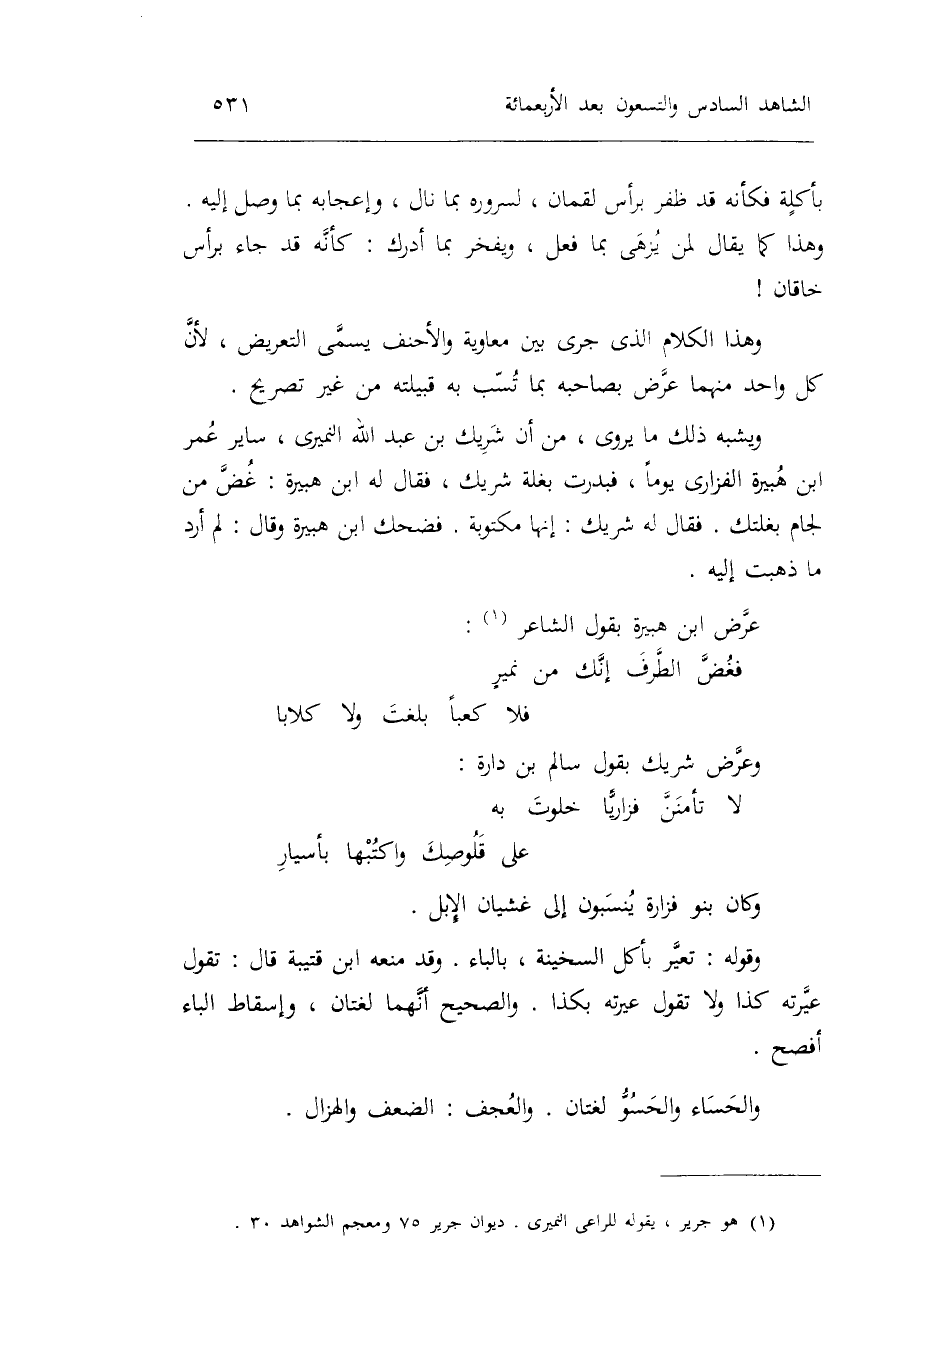 الشاهد السادس والتسعون بعد الأربعمائة ٥٣١
بأكلةٍ فكأنه قد ظفر برأس لقمان ، لسروره بما نال ، وإعجابه بما وصل إليه .
وهذا كما يقال لمن يُزهَى بما فعل ، ويفخر بما أدرك : كأنَّه قد جاء برأس
خاقان !
وهذا الكلام الذى جرى بين معاوية والأحنف يسمَّى التعريض ، لأنَّ
كل واحد منهما عرَّض بصاحبه بما تُسّب به قبيلته من غير تصريح .
ويشبه ذلك ما يروى ، من أن شَرِيك بن عبد الله النميرى ، ساير عُمر
ابن هُبيرة الفزارى يوماً ، فبدرت بغلة شريك ، فقال له ابن هبيرة : غُضَّ من
لجام بغلتك . فقال له شريك : إنها مكتوبة . فضحك ابن هبيرة وقال : لم أرد
ما ذهبت إليه .
عرَّض ابن هبيرة بقول الشاعر (١) :
فغُضَّ الطَّرفَ إنَّك من نميرٍ
فلا كعباً بلغتَ ولا كلابا
وعرَّض شريك بقول سالم بن دارة :
لا تأمنَنَّ فزاريًّا خلوتَ به
على قَلُوصِكَ واكتُبْها بأسيارِ
وكان بنو فزارة يُنسَبون إلى غشيان الإبل .
وقوله : تعيَّر بأكل السخينة ، بالباء . وقد منعه ابن قتيبة قال : تقول
عيَّرته كذا ولا تقول عيرته بكذا . والصحيح أنَّهما لغتان ، وإسقاط الباء
أفصح .
والحَسَاء والحَسُوُّ لغتان . والعُجف : الضعف والهزال .
(١) هو جرير ، يقوله للراعى النميرى . ديوان جرير ٧٥ ومعجم الشواهد ٣٠ .